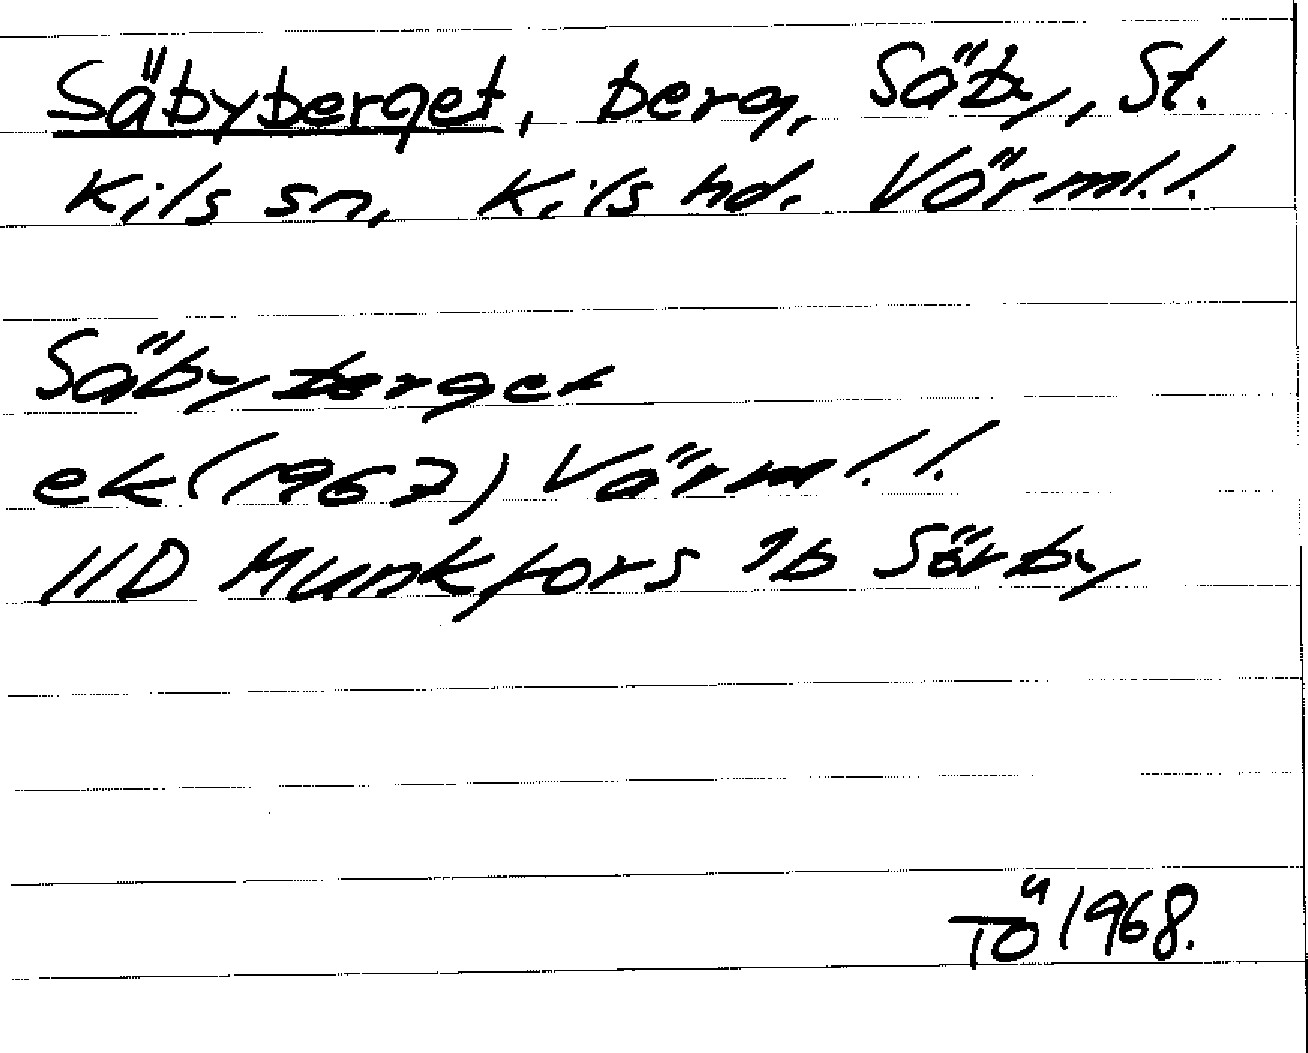 Säbyberget, berg, Säby, St.
Kils sn, Kils hd. Värml.l.
Säbyberget
ek (1967) Värml.l.
11D Munkfors 1b Sörby
TÖ 1968.